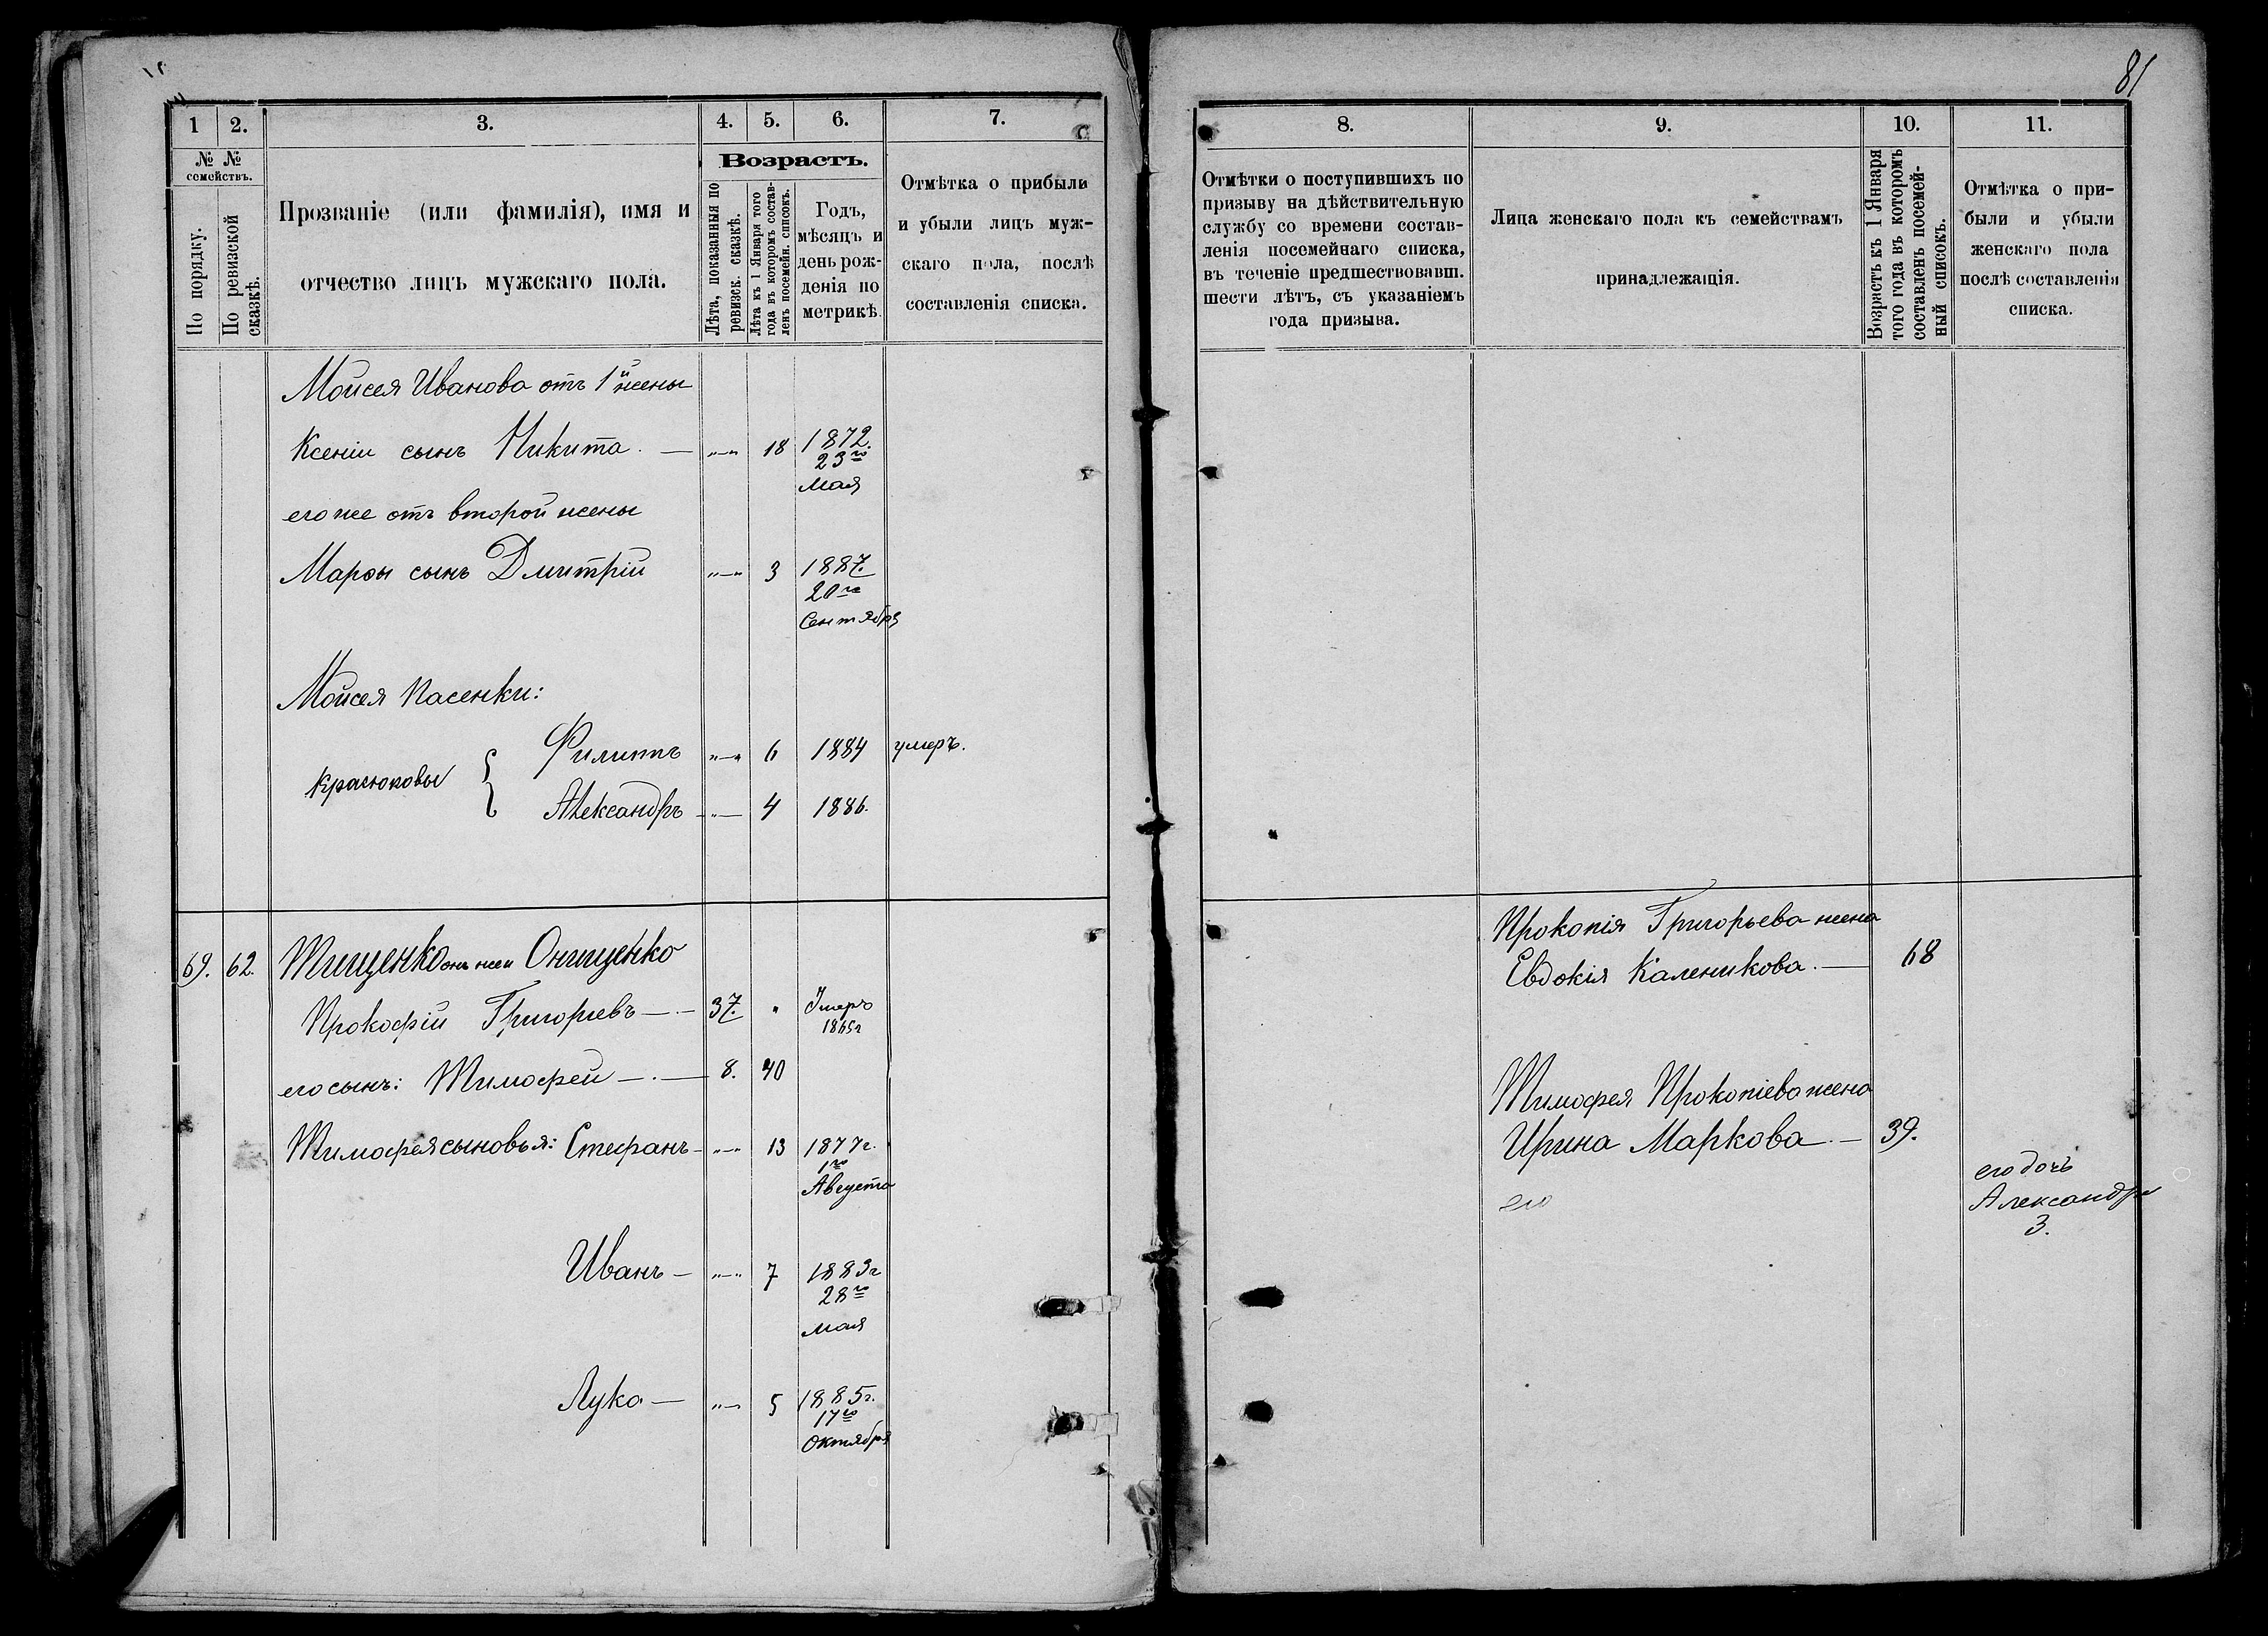 81
1
2.
3.
4.
5.
6.
7.
№ №
семействъ.
По порядку.
По ревизской
сказкѣ.
Прозваніе (или фамилія), имя и
отчество лицъ мужскаго пола.
Возрастъ.
Лѣта, показанныя по
ревизск. сказкѣ.
Лѣта къ 1 Января того
года въ которомъ состав-
ленъ посемейн. списокъ.
Годъ,
мѣсяцъ и
день рож-
денія по
метрикѣ.
Отмѣтка о прибыли
и убыли лицъ муж-
скаго пола, послѣ
составленія списка.
Моисея Иванова отъ 1й жены
Ксеніи сынъ Никита. — "—" 18 1872.
23го
Мая
его же отъ второй жены
Марѳы сынъ Дмитрій "—" 3 1887.
20го
Сентября
Моисея Пасенки:
Красюковы { Филиппъ "—" 6 1884 умеръ.
Александръ "— 4 1886.
69. 62. Тищенко онъ же и Онищенко
Прокофій Григорьевъ — 37. " Умеръ
1865г
его сынъ: Тимофей — 8. 40
Тимофея сыновья: Стефанъ "—" 13 1877г.
1го
Августа
Иванъ — "—" 7 1883г
28го
Мая
Лука — "—" 5 1885г.
17го
Октября
8.
9.
10.
11.
Отмѣтки о поступившихъ по
призыву на дѣйствительную
службу со времени состав-
ленія посемейнаго списка,
въ теченіе предшествовавш.
шести лѣтъ, съ указаніемъ
года призыва.
Лица женскаго пола къ семействамъ
принадлежащія.
Возрастъ къ 1 Января
того года въ которомъ
составленъ посемей-
ный списокъ.
Отмѣтка о при-
были и убыли
женскаго пола
послѣ составленія
списка.
Прокопія Григорьева жена
Евдокія Каленикова. — 68
Тимофея Прокопіева жена
Ирина Маркова. — 39.
его
его дочь
Александра
3.